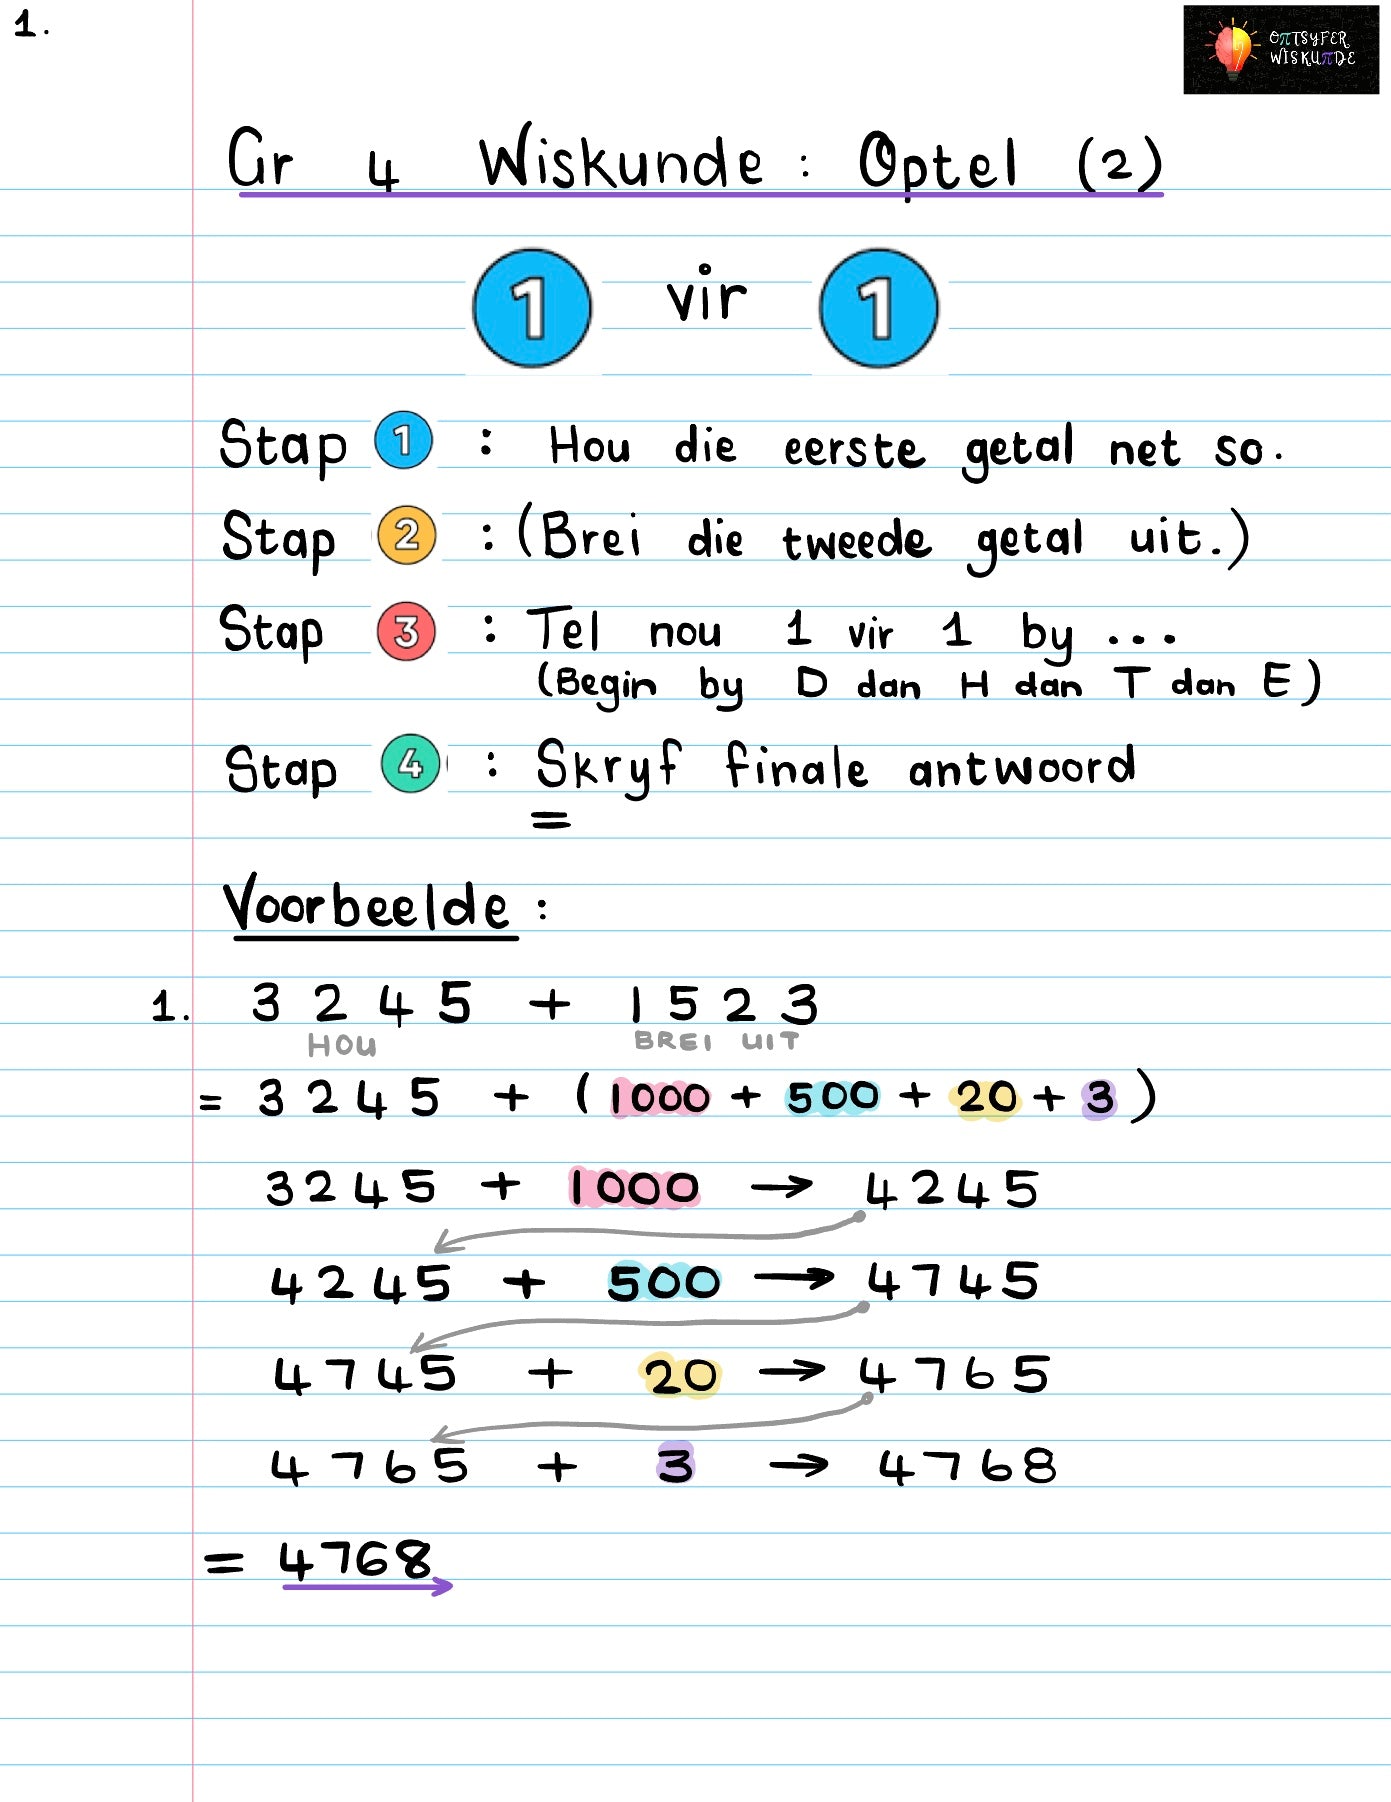 1.
OπTSYFER
WISKUπDE
Gr 4 Wiskunde : Optel (2)
1 vir 1
Stap 1 : Hou die eerste getal net so.
Stap 2 : (Brei die tweede getal uit.)
Stap 3 : Tel nou 1 vir 1 by ...
(Begin by D dan H dan T dan E)
Stap 4 : Skryf finale antwoord
=
Voorbeelde :
1. 3245 + 1523
HOU BREI UIT
= 3245 + (1000 + 500 + 20 + 3)
3245 + 1000 → 4245
4245 + 500 → 4745
4745 + 20 → 4765
4765 + 3 → 4768
= 4768